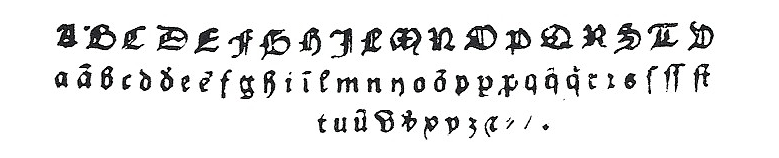 A B C D E F G H I L M N O P Q R S T V
a ã b c d ð e ẽ f g h i ĩ l m n n o õ p ꝑ ꝓ q q̃ q̈ r ꝛ s ſ ſſ ſt
t u ũ v v̓ x y z ꝛ ⸗ / .